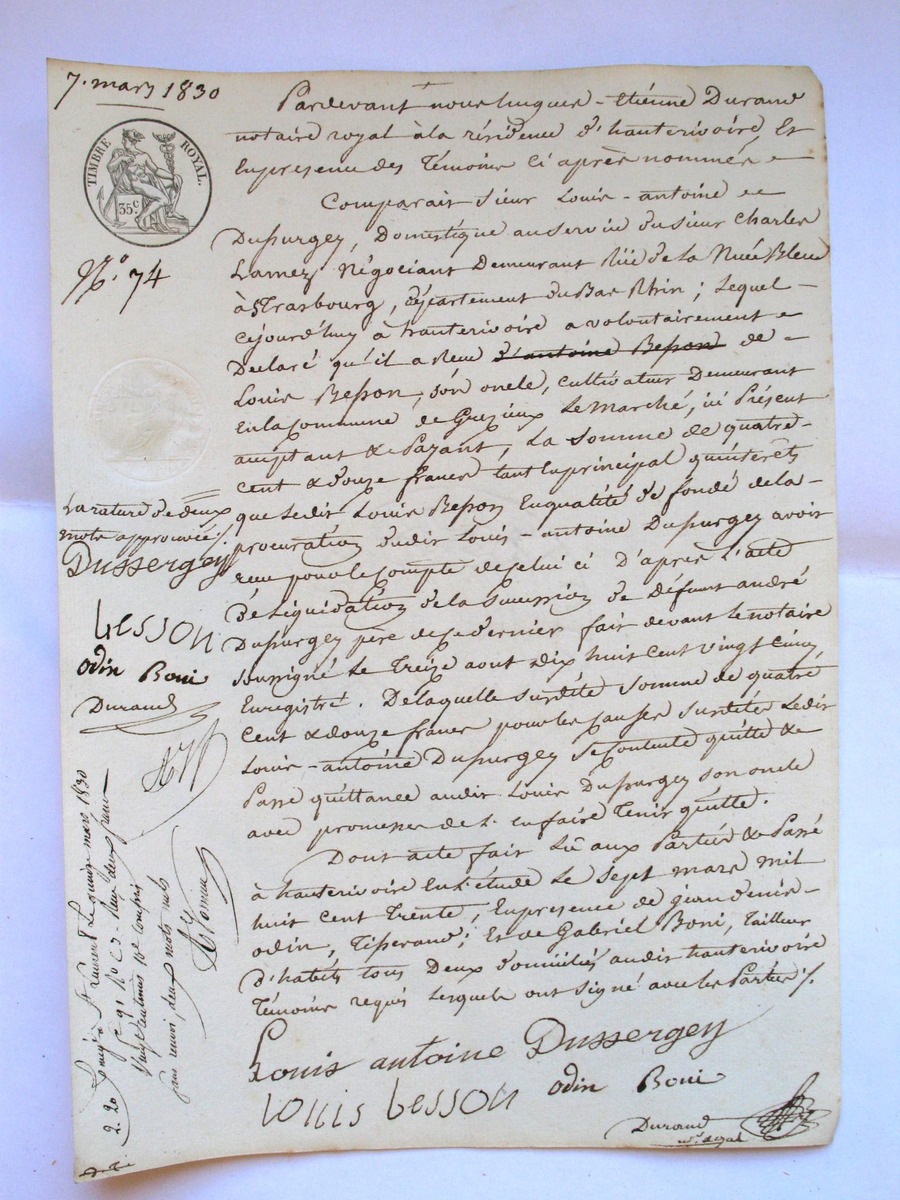 7. mars 1830
TIMBRE ROYAL.
35c
N.º 74
Pardevant nous hugues - Etiénne Durand
notaire royal à la résidence d'hauterivoire, Et
En présence des Témoins ci après nommés
Comparait Sieur Louis - antoine
Dussurgey, Domestique au service du sieur Charles
Négociant Demeurant Rüe de la Nuée Bleue
à Strasbourg, département du Bas Rhin ; Lequel -
Cejourd'huy à hauterivoire a volontairement
Déclaré qu'il a Reçu d'antoine Besson de
Louis Besson, son oncle, cultivateur Demeurant
En la Commune de Grezieux Le Marché, ici Présent
acceptant & Payant, La Somme de quatre
cent & douze francs tant En principal qu'intérêts
que Ledit Louis Besson En qualité de fondé de la -
procuration dudit Louis - antoine Dussurgey avoir
reçu pour le compte de celui ci D'après L'acte
De Liquidation de la Succession de Défunt andré
Dussurgey père de ce dernier fait devant Le notaire
soussigné Le Treize aout dix huit cent vingt cinq
Enregistré. De laquelle susdite somme de quatre
Cent & douze francs pour les causes susdites Ledit
Louis - antoine Dussurgey se Contente quitte &
Passe quittance audit Louis Dussurgey son oncle
avec promesse de L'en faire Tenir quitte.
Dont acte fait Lû aux Parties & Passé
à hauterivoire En L'étude Le Sept mars mil
huit Cent Trente, En présence de jean denis -
odin, Tisserand ; Et de Gabriel Boni, Tailleur
D'habits tous Deux domiciliés audit hauterivoire
Témoins requis Lesquels ont signé avec les Parties /.
Louis antoine Dussergey
Louis besson odin Boni
Durand
La rature de deux
mots approuvée /.
Dussergey
besson
odin Boni
Durand
St Laurent Le quinze mars 1830
Reçu deux francs
Vingt centimes 10e compris
sans renvoi, deux mots nuls
2. 20